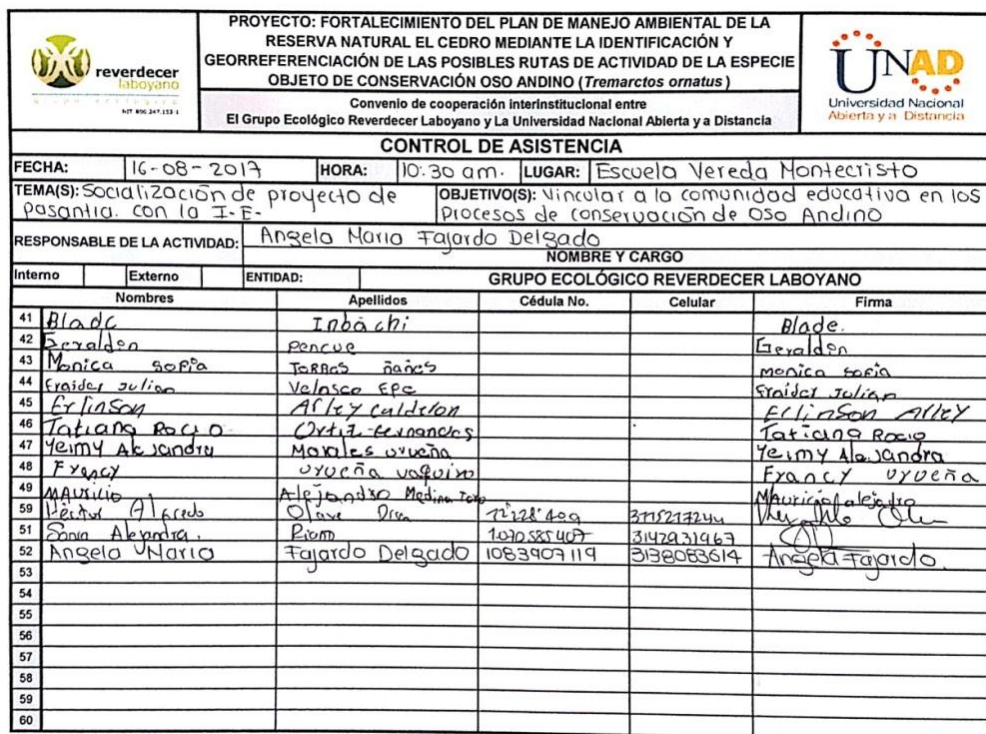 reverdecer
laboyano
grupo ecológico
NIT 800.247.153-1
PROYECTO: FORTALECIMIENTO DEL PLAN DE MANEJO AMBIENTAL DE LA
RESERVA NATURAL EL CEDRO MEDIANTE LA IDENTIFICACIÓN Y
GEORREFERENCIACIÓN DE LAS POSIBLES RUTAS DE ACTIVIDAD DE LA ESPECIE
OBJETO DE CONSERVACIÓN OSO ANDINO (Tremarctos ornatus)
Convenio de cooperación interinstitucional entre
El Grupo Ecológico Reverdecer Laboyano y La Universidad Nacional Abierta y a Distancia
UNAD
Universidad Nacional
Abierta y a Distancia
CONTROL DE ASISTENCIA
FECHA: 16-08-2017 HORA: 10:30 am. LUGAR: Escuela Vereda Montecristo
TEMA(S): Socialización de proyecto de OBJETIVO(S): Vincular a la comunidad educativa en los
pasantia. con la I.E. procesos de conservación de Oso Andino
RESPONSABLE DE LA ACTIVIDAD: Angela Maria Fajardo Delgado
NOMBRE Y CARGO
Interno Externo ENTIDAD: GRUPO ECOLÓGICO REVERDECER LABOYANO
Nombres Apellidos Cédula No. Celular Firma
41 Blade Inbachi Blade.
42 Geralden Pencue Geralden
43 Monica sofia Torres ñañes monica sofia
44 Fraider Julian Velasco Epe Fraider Julian
45 Erlinson Arley calderon Erlinson Arley
46 Tatiana Rocio Ortiz Tatiana Rocio
47 Yeimy Alejandra Morales urueña Yeimy Alejandra
48 Francy urueña vaquiro Francy urueña
49 Mauricio Alejandro Medina Toro Mauricio alejadro
59 Héctor Alfredo Olave 3115217244
51 Sonia Alejandra. 1.070.585.407 3142931967
52 Angela Maria Fajardo Delgado 1083907119 3138083614 Angela Fajardo.
53
54
55
56
57
58
59
60